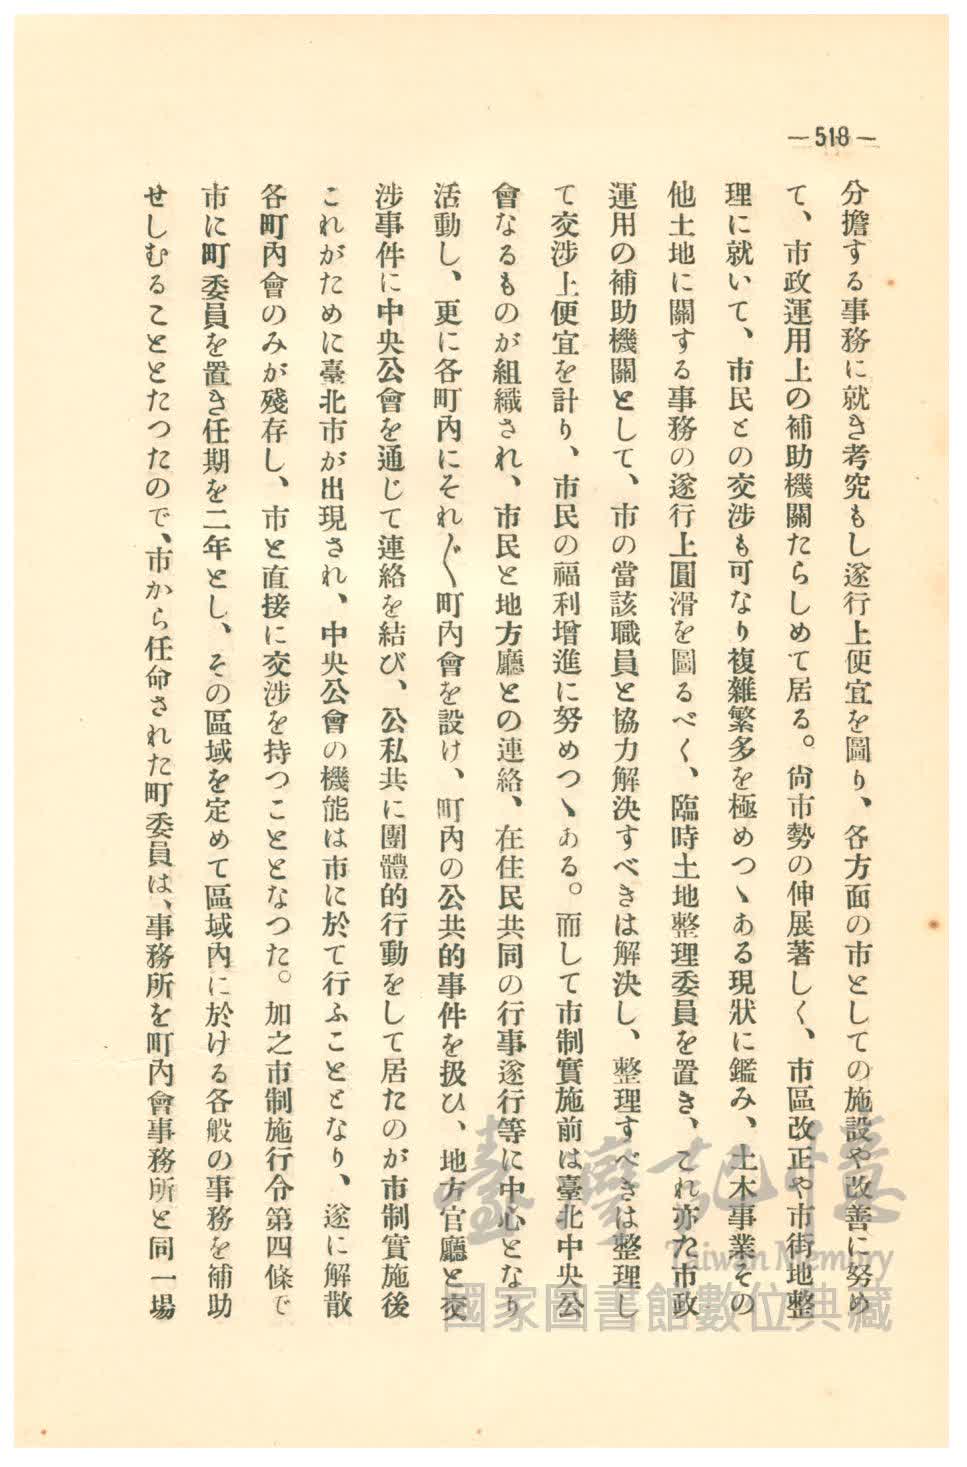 —518—
分擔する事務に就き考究もし遂行上便宜を圖り、各方面の市としての施設や改善に努め
て、市政運用上の補助機關たらしめて居る。尙市勢の伸展著しく、市區改正や市街地整
理に就いて、市民との交渉も可なり複雜繁多を極めつゝある現狀に鑑み、土木事業その
他土地に關する事務の遂行上圓滑を圖るべく、臨時土地整理委員を置き、これ亦た市政
運用の補助機關として、市の當該職員と協力解決すべきは解決し、整理すべきは整理し
て交涉上便宜を計り、市民の福利增進に努めつゝある。而して市制實施前は臺北中央公
會なるものが組織され、市民と地方廳との連絡、在住民共同の行事遂行等に中心となり
活動し、更に各町內にそれ〲町內會を設け、町內の公共的事件を扱ひ、地方官廳と交
涉事件に中央公會を通じて連絡を結び、公私共に團體的行動をして居たのが市制實施後
これがために臺北市が出現され、中央公會の機能は市に於て行ふこととなり、遂に解散
各町內會のみが殘存し、市と直接に交涉を持つこととなつた。加之市制施行令第四條で
市に町委員を置き任期を二年とし、その區域を定めて區域內に於ける各般の事務を補助
せしむることとたつたので、市から任命された町委員は、事務所を町內會事務所と同一場
臺灣記憶
Taiwan Memory
國家圖書館數位典藏